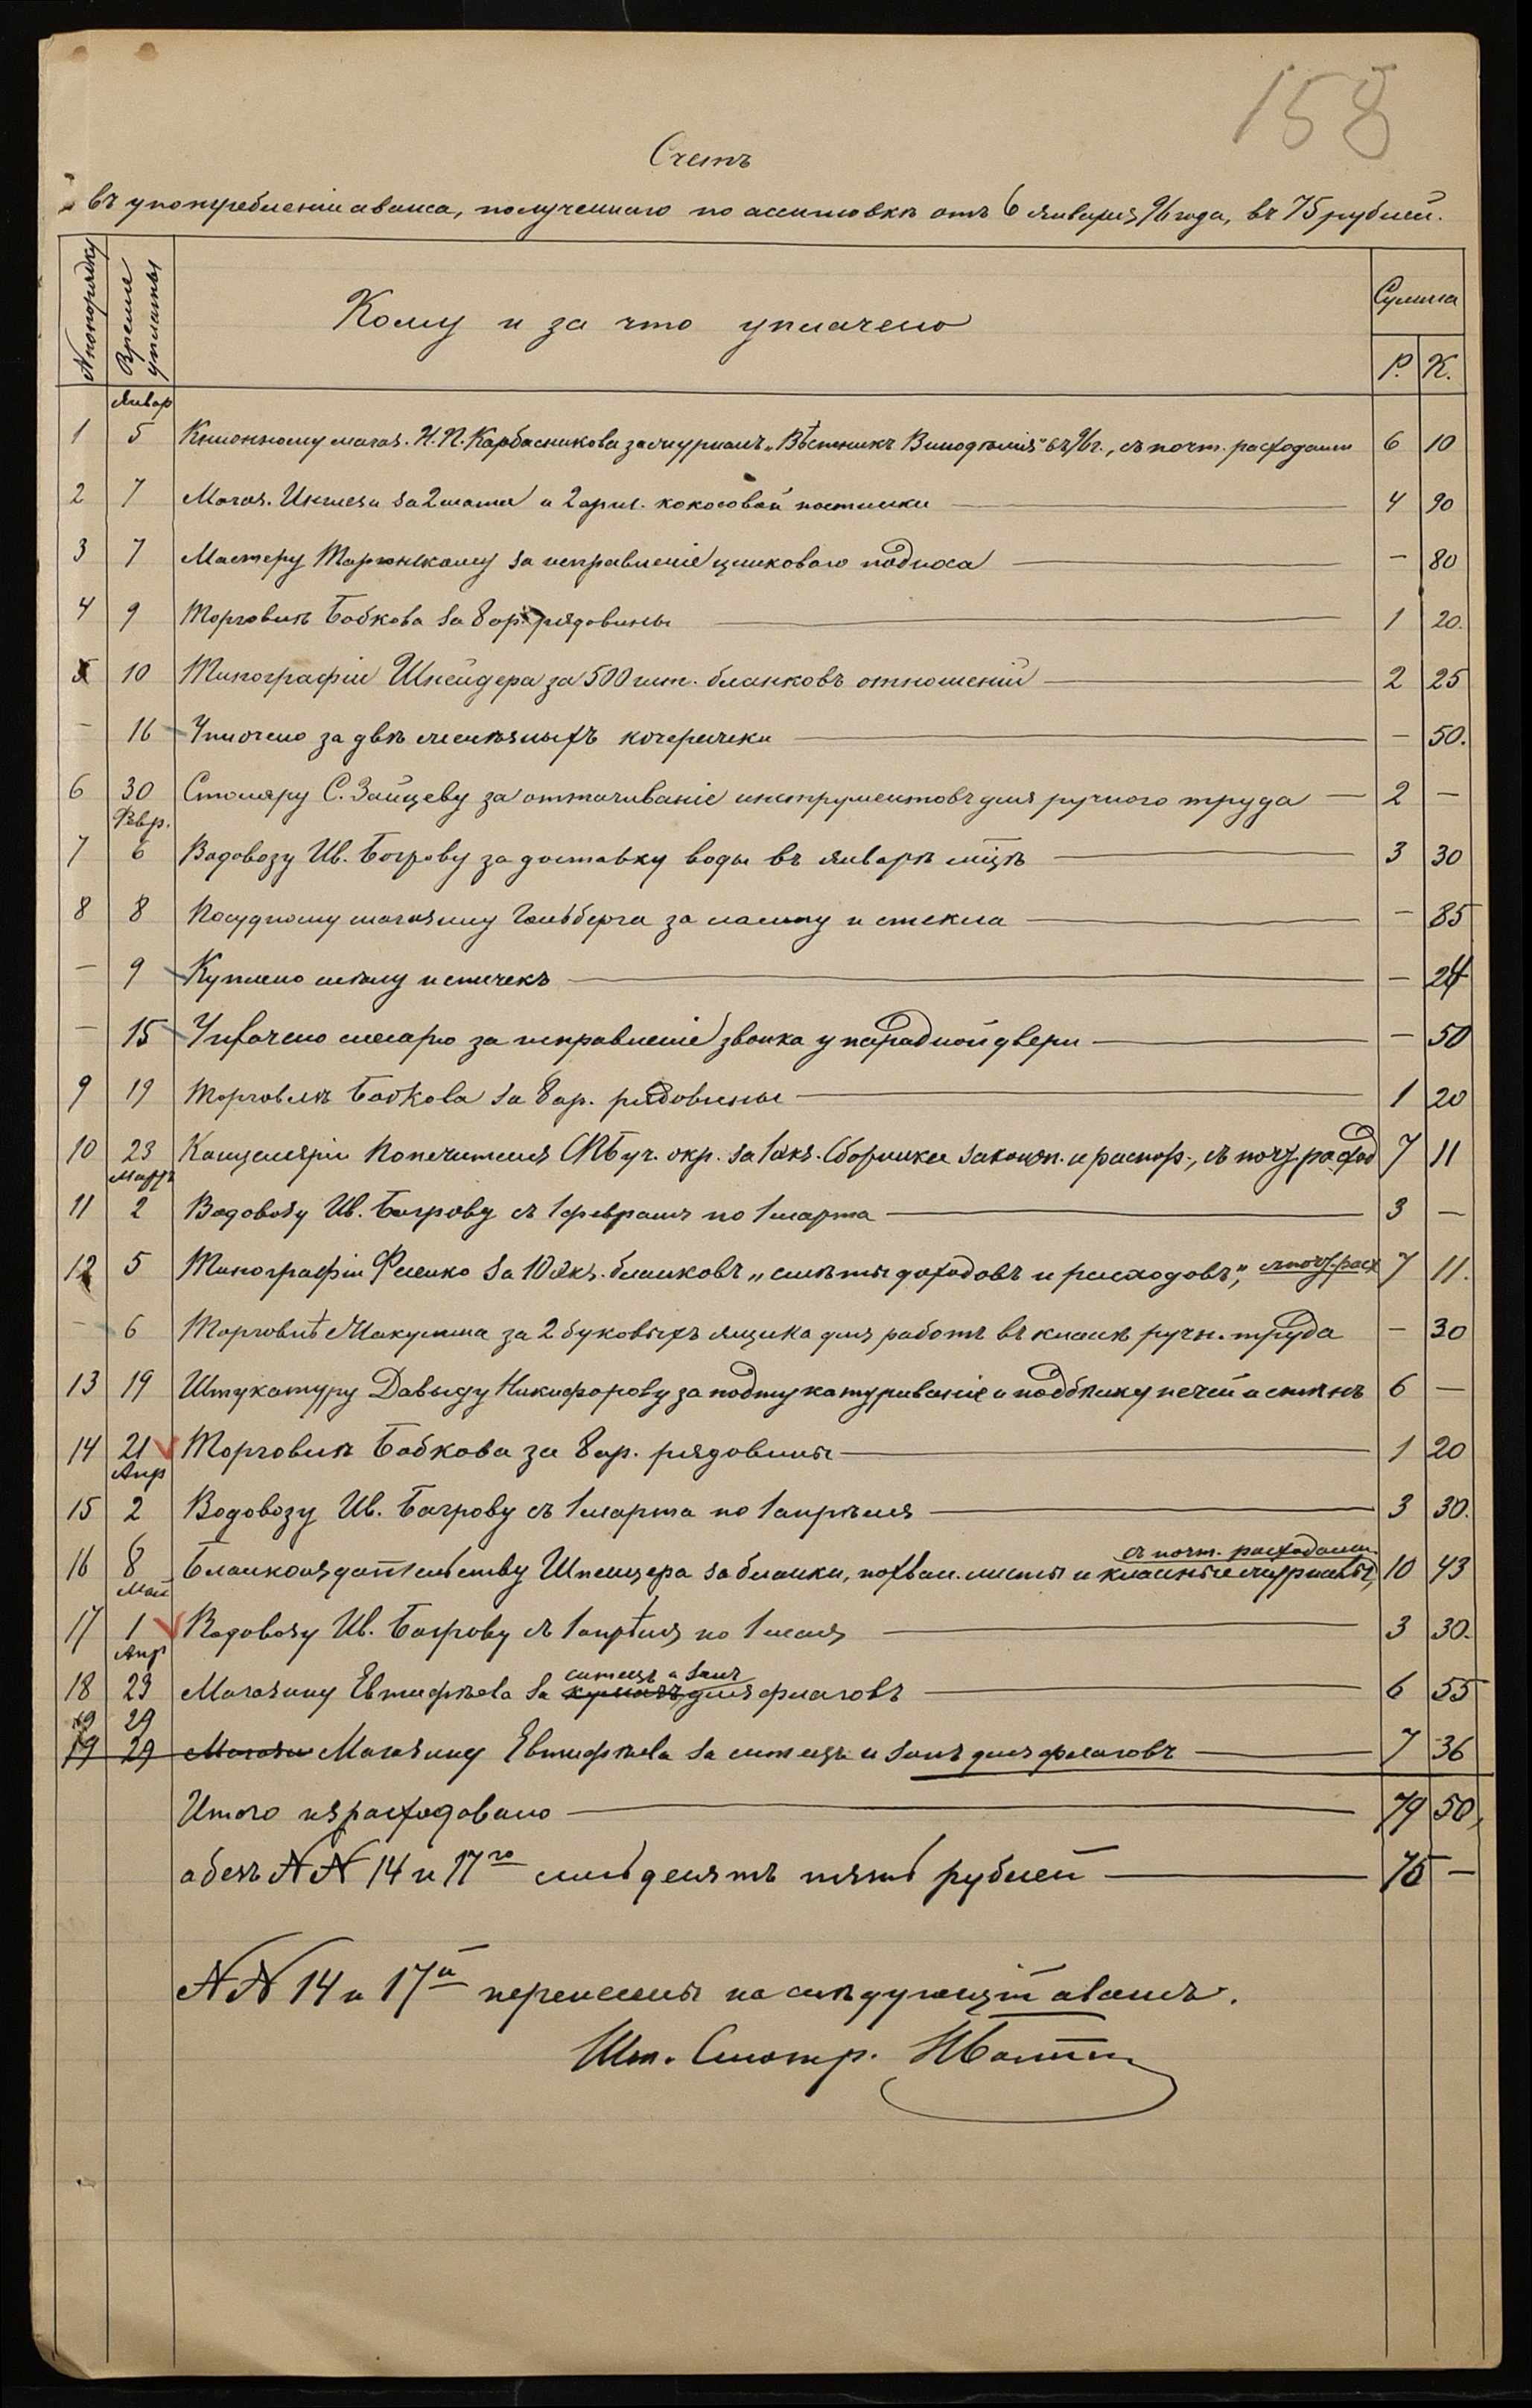 158
Счетъ
въ употребленіи аванса, полученнаго по ассигновкѣ отъ 6 января 96 года, въ 75 рублей.
№ по порядку Время уплаты Кому и за что уплачено Сумма
Р. К.
Январ
1 5 Книжному магаз. Н. П. Карбасникова за журналъ „Вѣстникъ Винодѣлія" въ 96 г., съ почт. расходами 6 10
2 7 Магаз. за 2 мата и 2 арш. кокосовой настилки 4 90
3 7 Мастеру за исправленіе цинковаго подноса — 80
4 9 Торговлѣ Бобкова за 8 ар. рядовины 1 20.
5 10 Типографіи Шнейдера за 500 шт. бланковъ отношеній 2 25
— 16 Уплочено за двѣ кочережки — 50.
6 30 Столяру С. Зайцеву за оттачиваніе инструментовъ для ручного труда 2 —
Февр.
7 6 Водовозу Ив. Багрову за доставку воды въ январѣ мцѣ 3 30
8 8 Посудному магазину Гольберга за лампу и стекла — 85
— 9 Куплено мѣлу и спичекъ — 24
— 15 Уплачено слесарю за исправленіе звонка у парадной двери — 50
9 19 Торговлѣ Бобкова за 8 ар. рядовины 1 20
10 23 Канцеляріи Попечителя СПБ уч. окр. за 1 экз. Сборника законоп. и распор., съ поч. расход 7 11
Мартъ
11 2 Водовозу Ив. Багрову съ 1 февраля по 1 марта 3 —
12 5 Типографіи Фесенко за 10 экз. бланковъ „смѣты доходовъ и расходовъ", съ поч. расх 7 11.
— 6 Торговлѣ Макушина за 2 буковыхъ ящика для работъ въ классѣ ручн. труда — 30
13 19 Штукатуру Давыду Никифорову за подштукатуриваніе и подбѣлку печей и стѣнъ 6 —
14 21 Торговлѣ Бобкова за 8 ар. рядовины 1 20
Апр
15 2 Водовозу Ив. Багрову съ 1 марта по 1 апрѣля 3 30.
съ почт. расходами.
16 8 Бланкоиздательству Шпенцера за бланки, похвал. листы и классные журналы, 10 43
Май
17 1 Водовозу Ив. Багрову съ 1 апрѣля по 1 мая 3 30.
Апр
ситецъ и
18 29 Магазину Евтифѣева за кумачъ для флаговъ 6 55
19 29
19 29 Магази Магазину Евтифѣева за ситецъ и для флаговъ 7 36
Итого израсходовано 79 50,
а безъ №№ 14 и 17го семьдесятъ пять рублей 75 —
№№ 14 и 17й перенесены на слѣдующій авансъ.
Шт. Смотр.